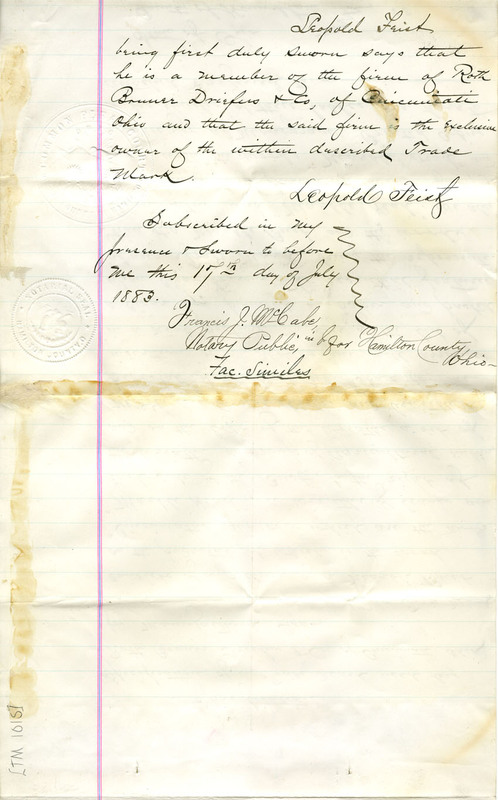 Leopold Feist
being first duly sworn says that
he is a member of the firm of Roth
Bruner Dreifus & Co, of Cincinnati
Ohio and that the said firm is the exclusive
owner of the within described Trade
Mark.
Leopold Feist
Subscribed in my
presence & sworn to before
me this 17th day of July
1883.
Francis J. McCabe,
Notary Public, in & for Hamilton County
Ohio-
Fac. Similes
[TM 1015]